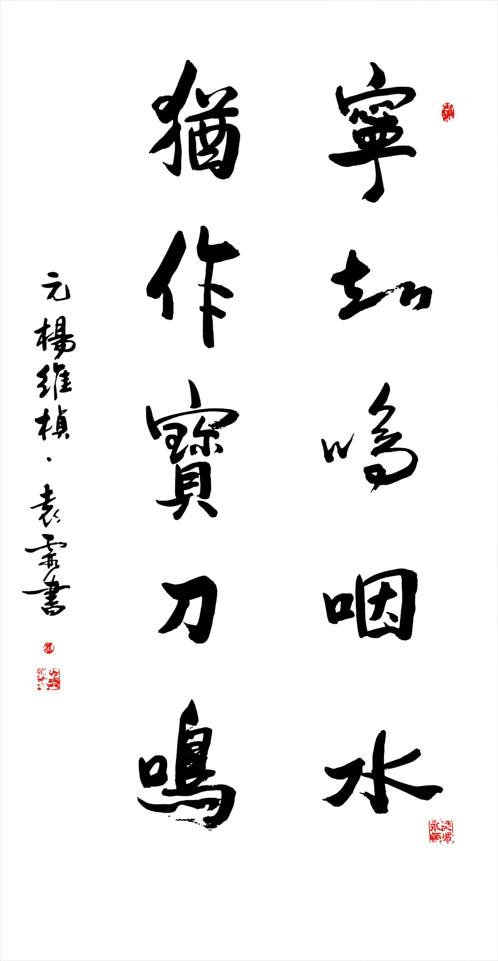 寧知嗚咽水
猶作寶刀鳴
元楊維楨·袁書